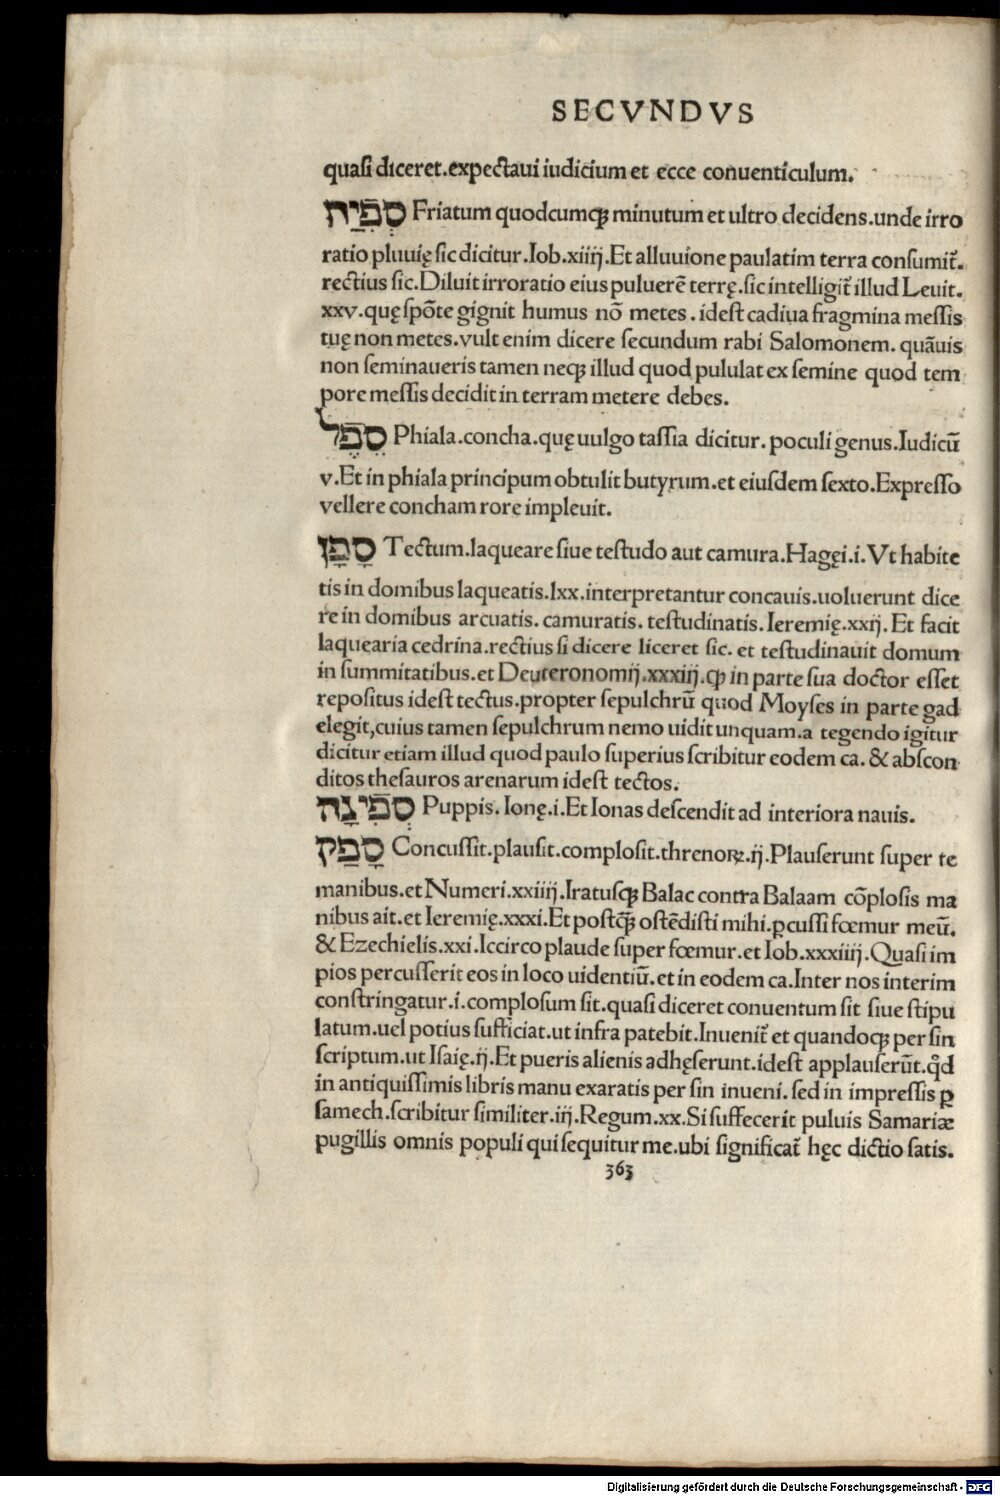 SECVNDVS
quaſi diceret.expectaui iudicium et ecce conuenticulum.
סְפִֿיַח Friatum quodcumqꝫ minutum et ultro decidens.unde irro
ratio pluuię ſic dicitur.Iob.xiiij.Et alluuione paulatim terra conſumit᷑.
rectius ſic.Diluit irroratio eius puluerē terrę.ſic intelligit᷑ illud Leuit.
xxv.quę ſpōte gignit humus nō metes.ideſt cadiua fragmina meſſis
tuę non metes.vult enim dicere ſecundum rabi Salomonem. quāuis
non ſeminaueris tamen neqꝫ illud quod pululat ex ſemine quod tem
pore meſſis decidit in terram metere debes.
סֵפֶֿל Phiala.concha.quę uulgo taſſia dicitur. poculi genus.Iudicū
v.Et in phiala principum obtulit butyrum.et eiuſdem ſexto.Expreſſo
vellere concham rore impleuit.
סָפַֿן Tectum.laqueare ſiue teſtudo aut camura.Hagęi.i.Vt habite
tis in domibus laqueatis.lxx.interpretantur concauis.uoluerunt dice
re in domibus arcuatis. camuratis. teſtudinatis. Ieremię.xxij. Et facit
laquearia cedrina.rectius ſi dicere liceret ſic. et teſtudinauit domum
in ſummitatibus.et Deuteronomij.xxxiij.ꝙ in parte ſua doctor eſſet
repoſitus ideſt tectus.propter ſepulchrū quod Moyſes in parte gad
elegit,cuius tamen ſepulchrum nemo uidit unquam.a tegendo igitur
dicitur etiam illud quod paulo ſuperius ſcribitur eodem ca. & abſcon
ditos theſauros arenarum ideſt tectos.
סְפִֿינָה Puppis. Ionę.i.Et Ionas deſcendit ad interiora nauis.
סָפַֿק Concuſſit.plauſit.comploſit.threnoꝝ.ij.Plauſerunt ſuper te
manibus.et Numeri.xxiiij.Iratuſqꝫ Balac contra Balaam cōploſis ma
nibus ait.et Ieremię.xxxi.Et poſtq̄ꝫ oſtēdiſti mihi.ꝑcuſſi fœmur meū.
& Ezechielis.xxi.Iccirco plaude ſuper fœmur.et Iob.xxxiiij.Quaſi im
pios percuſſerit eos in loco uidentiū.et in eodem ca.Inter nos interim
conſtringatur.i.comploſum ſit.quaſi diceret conuentum ſit ſiue ſtipu
latum.uel potius ſufficiat.ut infra patebit.Inuenit᷑ et quandoqꝫ per ſin
ſcriptum.ut Iſaię.ij.Et pueris alienis adhęſerunt.ideſt applauſerūt.qd̄
in antiquiſſimis libris manu exaratis per ſin inueni. ſed in impreſſis ꝑ
ſamech.ſcribitur ſimiliter.iij.Regum.xx.Si ſuffecerit puluis Samariæ
pugillis omnis populi qui ſequitur me.ubi ſignificat᷑ hęc dictio ſatis.
363
Digitalisierung gefördert durch die Deutsche Forschungsgemeinschaft - DFG